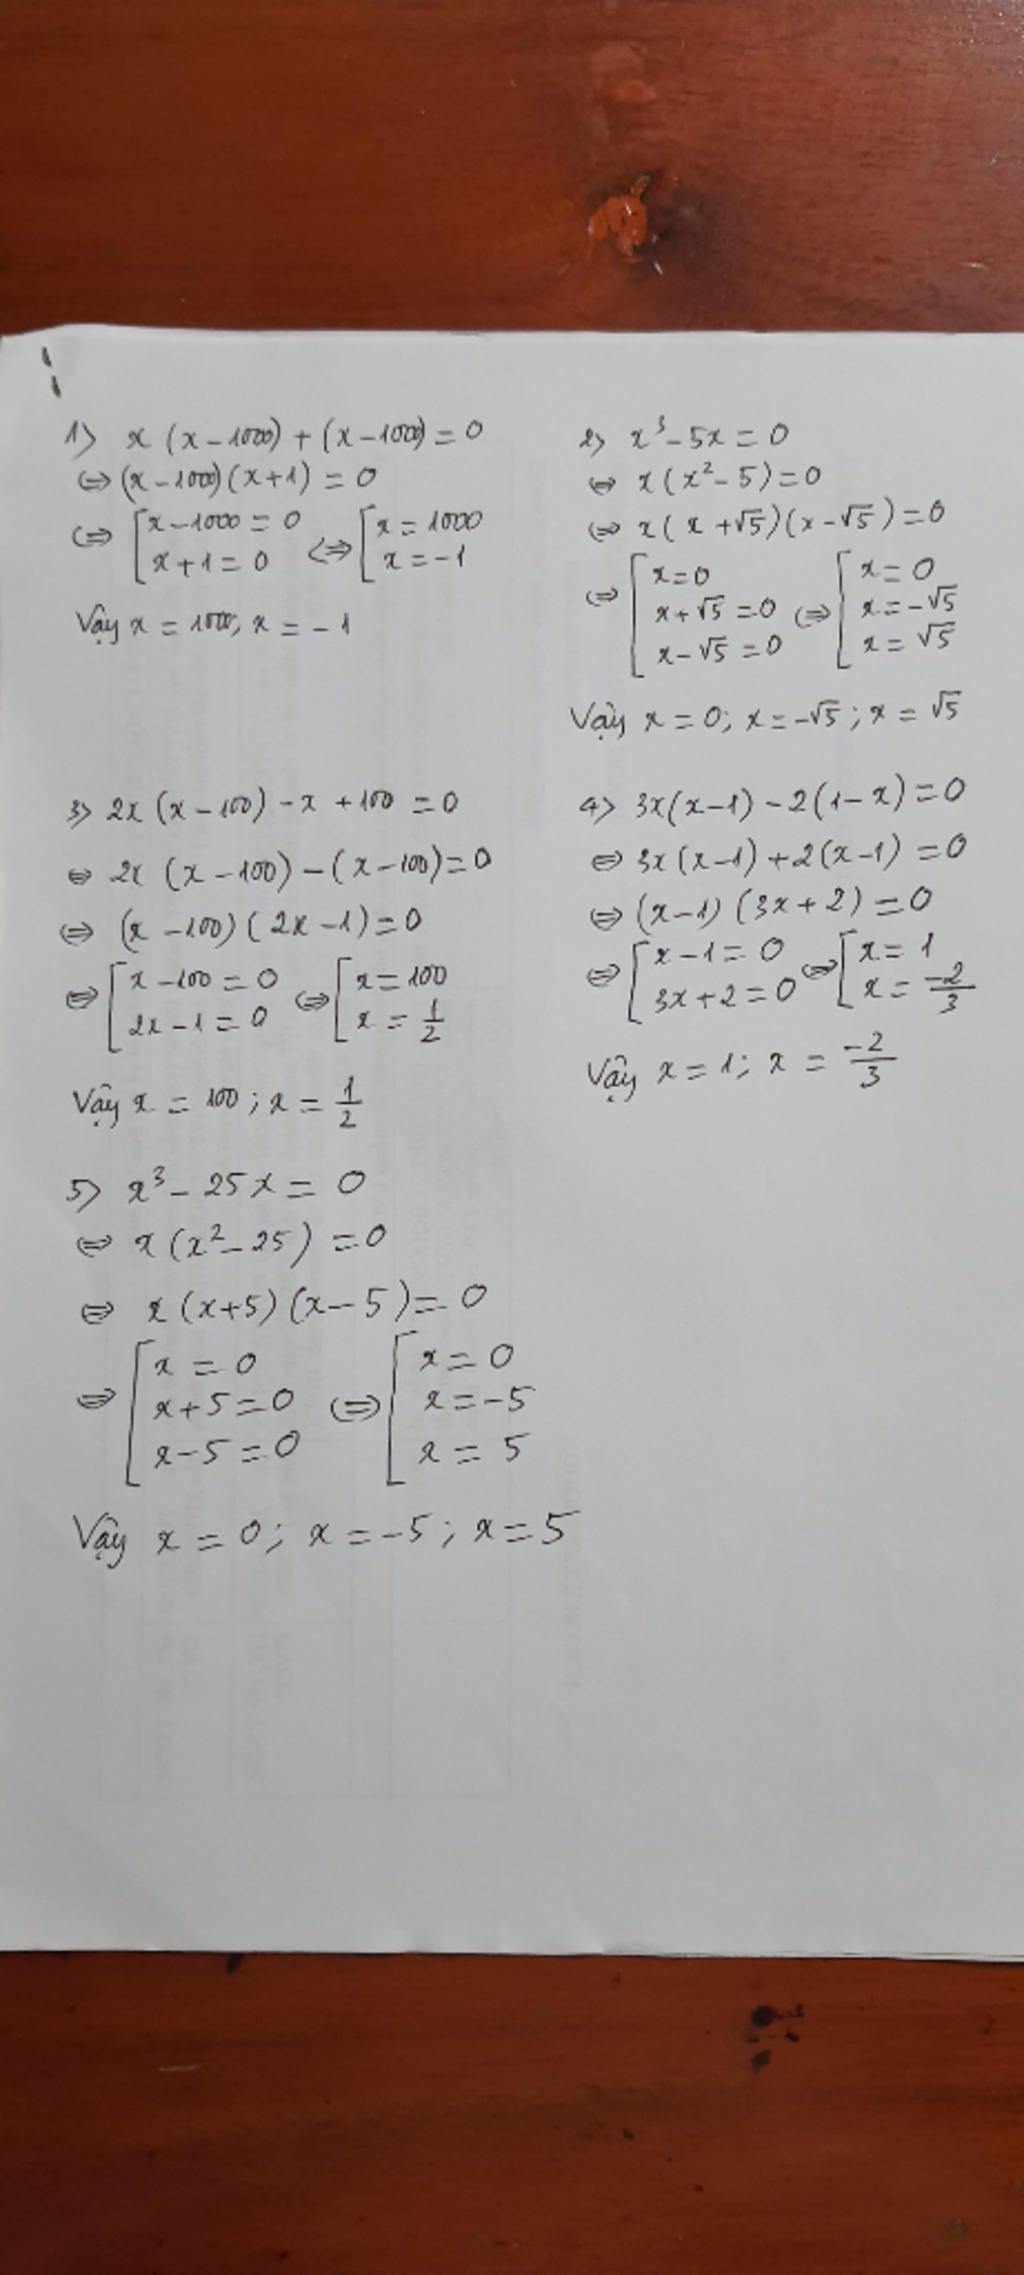 1) x (x - 1000) + (x - 1000) = 0
⇔ (x - 1000) (x + 1) = 0
⇔ [ x - 1000 = 0 ⇔ [ x = 1000
x + 1 = 0 x = -1
Vậy x = 1000; x = -1
2) x³ - 5x = 0
⇔ x (x² - 5) = 0
⇔ x ( x + √5 ) (x - √5 ) = 0
⇔ [ x = 0 ⇔ [ x = 0
x + √5 = 0 x = -√5
x - √5 = 0 x = √5
Vậy x = 0; x = -√5 ; x = √5
3) 2x (x - 100) - x + 100 = 0
⇔ 2x (x - 100) - (x - 100) = 0
⇔ (x - 100) ( 2x - 1) = 0
⇔ [ x - 100 = 0 ⇔ [ x = 100
2x - 1 = 0 x = 1/2
Vậy x = 100 ; x = 1/2
4) 3x(x - 1) - 2 (1 - x) = 0
⇔ 3x (x - 1) + 2 (x - 1) = 0
⇔ (x - 1) (3x + 2) = 0
⇔ [ x - 1 = 0 ⇔ [ x = 1
3x + 2 = 0 x = -2/3
Vậy x = 1; x = -2/3
5) x³ - 25x = 0
⇔ x (x² - 25) = 0
⇔ x (x + 5) (x - 5) = 0
⇔ [ x = 0 ⇔ [ x = 0
x + 5 = 0 x = -5
x - 5 = 0 x = 5
Vậy x = 0; x = -5 ; x = 5